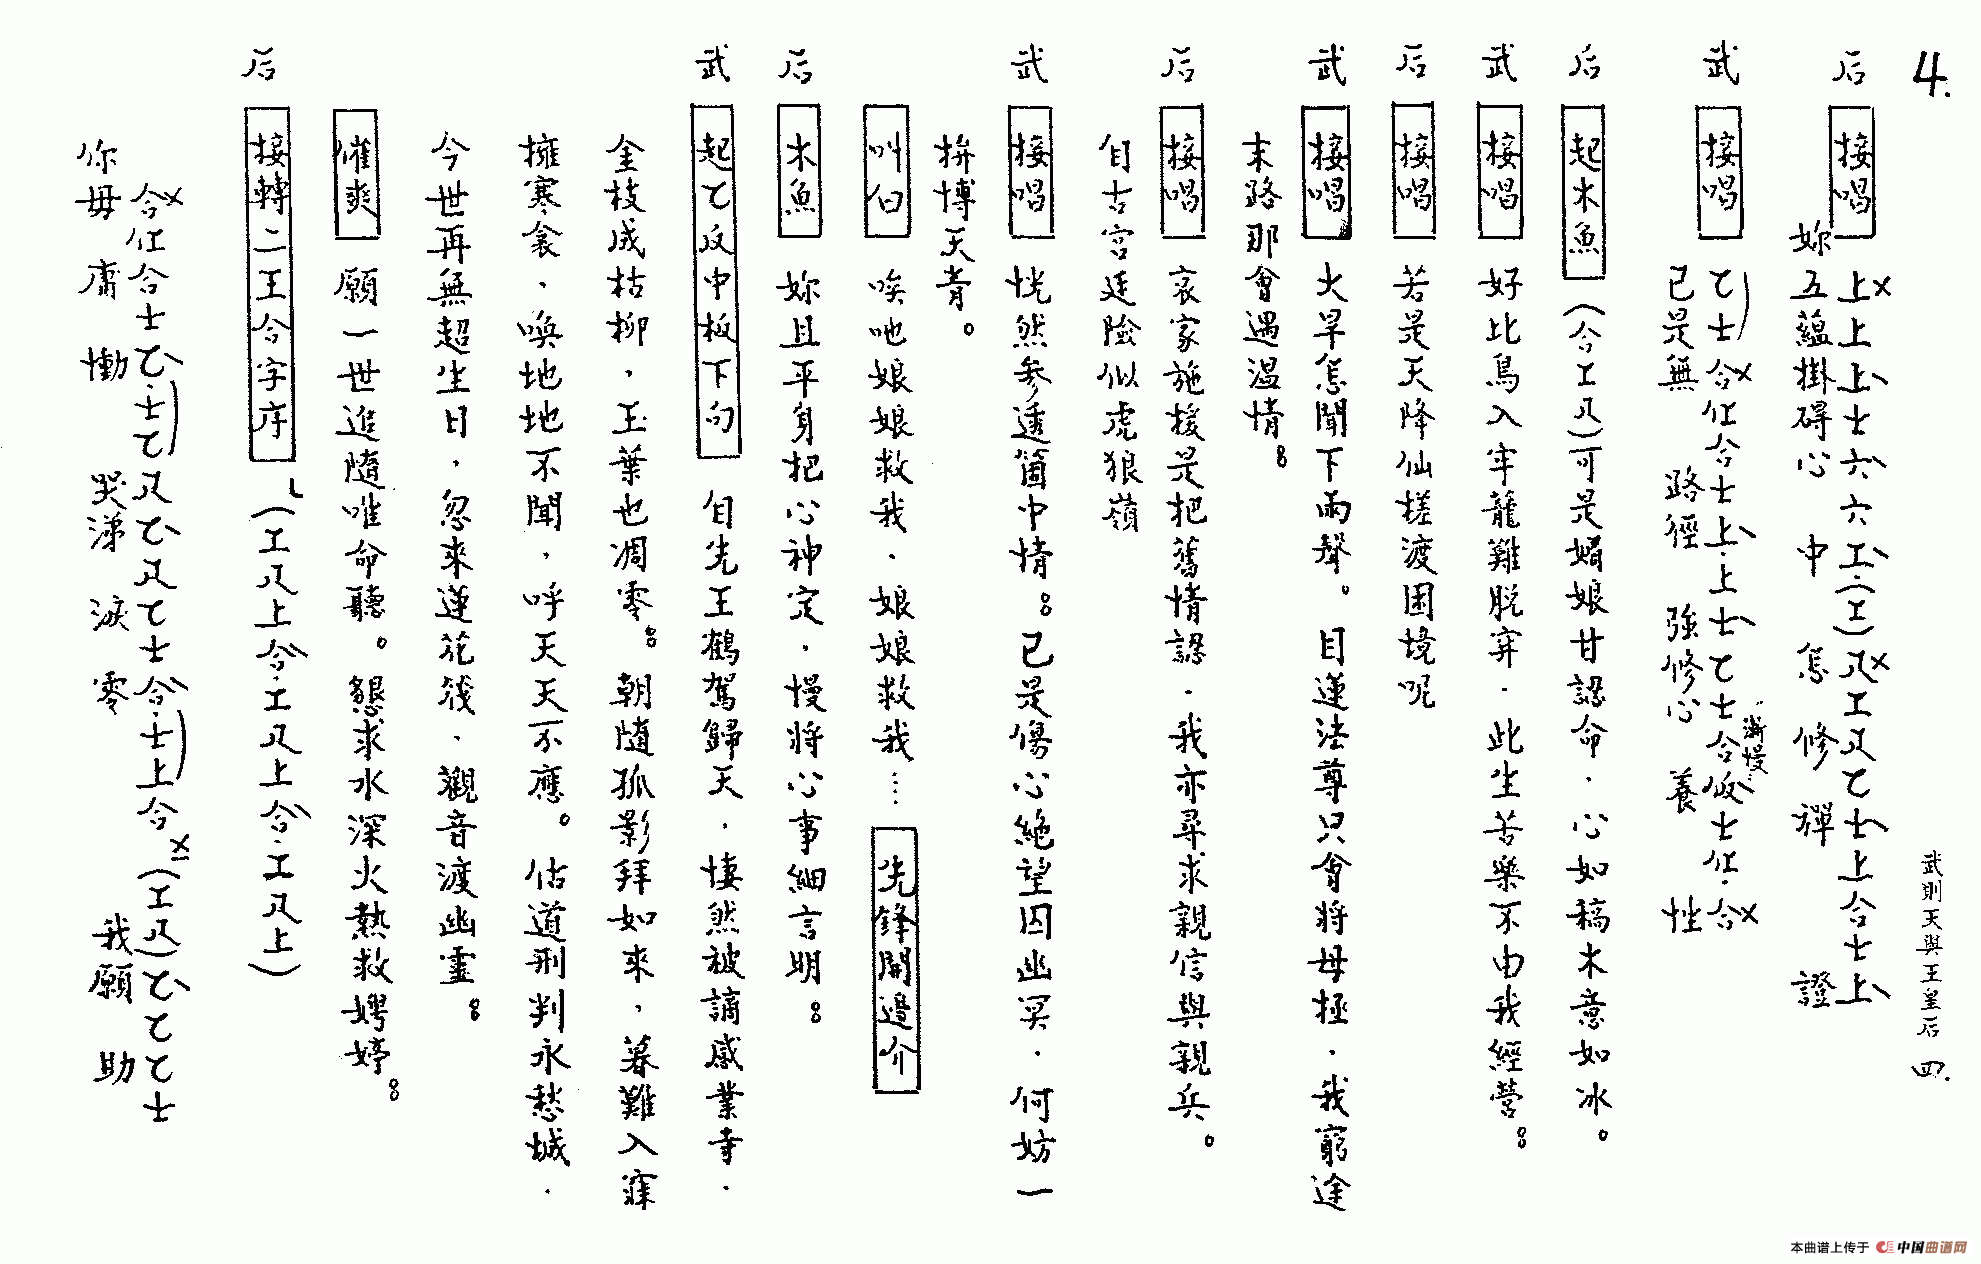 4.
武則天與王皇后 四.
后 接唱 上上上士六六工.(工)凡工凡乙士上合士上
妳五蘊掛碍心中怎修禪證
武 接唱 乙士合仜合士上.上士乙士合仮士仜.合
漸慢
已是無路徑強修心養性
后 起木魚 (合工凡)可是媚娘甘認命．心如稿木意如冰。
武 接唱 好比鳥入牢籠難脫弃．此生苦樂不由我經營。
后 接唱 若是天降仙槎渡困境呢
武 接唱 火旱怎聞下雨聲。目蓮法尊只會將母拯．我窮途
末路那會遇温情。
后 接唱 哀家施援是把舊情認．我亦尋求親信與親兵。
自古宮廷險似虎狼嶺
武 接唱 恍然参透箇中情。已是傷心絶望囚幽冥．何妨一
拚博天青。
叫白 唉吔娘娘救我．娘娘救我… 先鋒開邊介
后 木魚 妳且平身把心神定．慢將心事細言明。
武 起乙反中板下句 自先王鶴駕歸天．悽然被謫感業寺．
金枝成枯柳，玉葉也凋零。朝隨孤影拜如來，暮難入寐
擁寒衾．喚地地不聞，呼天天不應。估道刑判永愁城．
今世再無超生日，忽來蓮花筏．觀音渡幽靈。
催爽 願一世追隨唯命聽。懇求水深火熱救娉婷。
后 接轉二王合字序 (工凡上合.工凡上合.工凡上)
合仜合士乙.士乙凡乙凡乙士合.士上合(工凡)乙乙乙士
你毋庸慟哭涕淚零我願助
本曲谱上传于 中国曲谱网